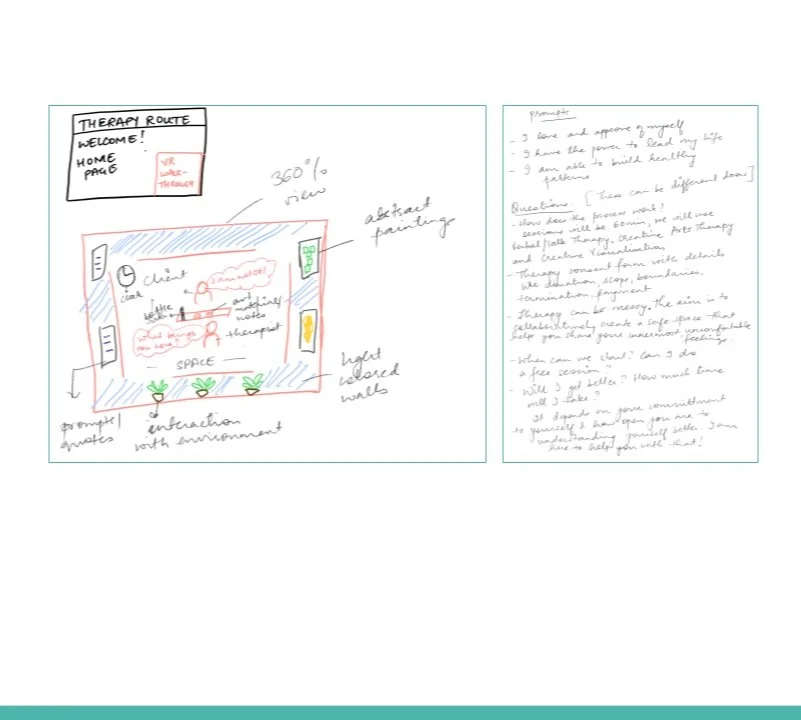 THERAPY ROUTE
WELCOME!
HOME
PAGE
VR
WALK-
THROUGH
360°%
view
abstract
paintings
client
clock
I am not ok!
bottle
art
materials/
notes
What brings
you here?
therapist
SPACE
light
colored
walls
prompts/
quotes
interaction
with environment
prompts
- I love and approve of myself
- I have the power to lead my life
- I am able to build healthy
patterns
Questions. [These can be different doors]
- How does the process work?
sessions will be 60min, we will use
Verbal/talk Therapy, Creative Arts Therapy
and Creative Visualisation
- Therapy consent form with details
like duration, scope, boundaries,
termination, payment
- Therapy can be messy. The aim is to
collaboratively create a safe space that
help you share your innermost, uncomfortable
feelings.
- When can we start? Can I do
a free session?
- Will I get better? How much time
will I take?
It depends on your commitment
to yourself & how open you are to
understanding yourself better. I am
here to help you with that!